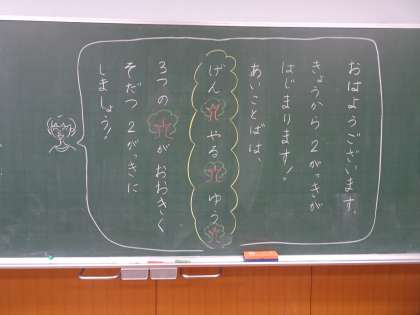 おはようございます。
きょうから2がっきが
はじまります!
あいことばは、
げん木やる木ゆう木
3つの木がおおきく
そだつ2がっきに
しましょう!